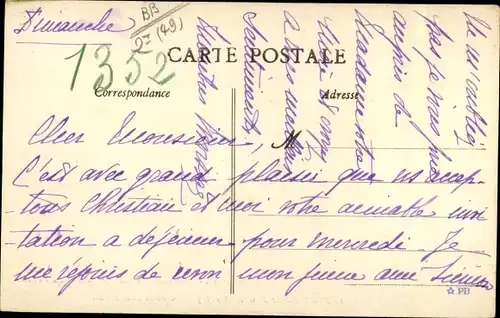 Dimanche
BB
1352
CARTE POSTALE
Correspondance
Adresse
M
Cher Monsieur,
C'est avec grand plaisir que ns accep-
-tons Christiane et moi votre aimable invi
-tation a déjeuner pour mercredi. Je
me réjouis de revoir mon jeune ami
Ne m'oubliez
pas je vous prie
auprès de
Madame votre
à mes meilleurs
sentiments
PB